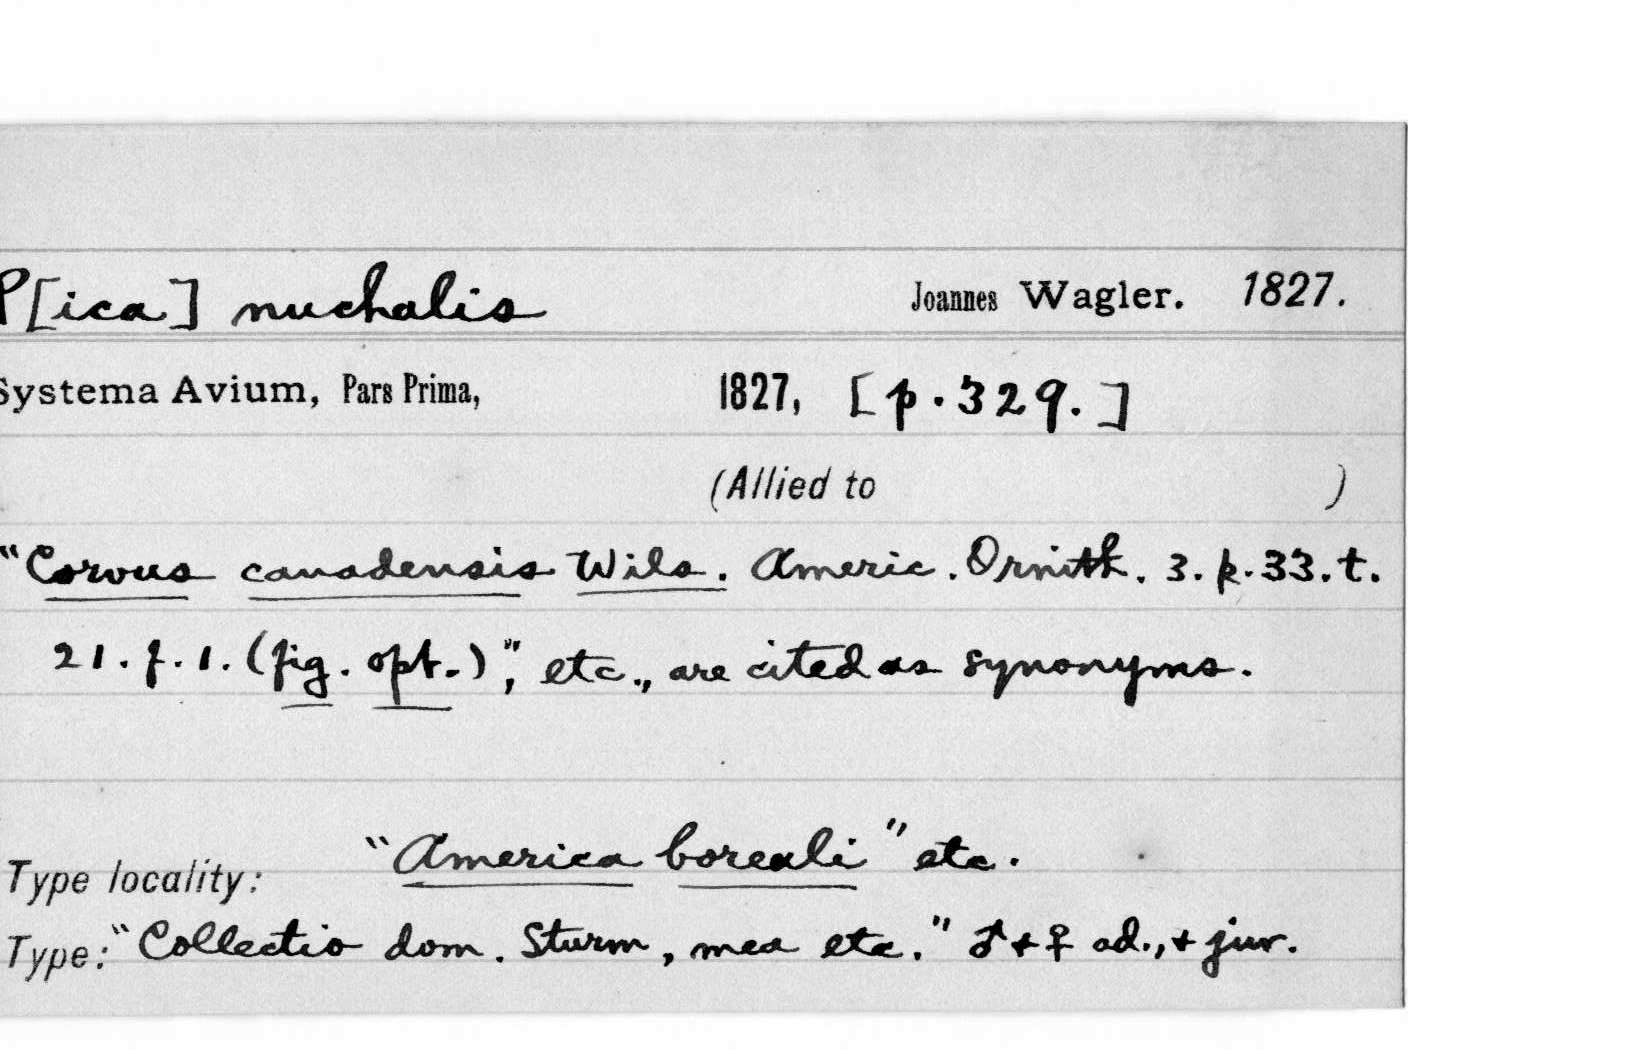 P[ica] nuchalis Joannes Wagler. 1827.
Systema Avium, Pars Prima, 1827, [p.329.]
(Allied to )
"Corvus canadensis Wils. Americ. Ornith. 3. p.33.t.
21.f.1. (fig. opt.)", etc., are cited as synonyms.
Type locality: "America boreali" etc.
Type: "Collectio dom. Sturm, mea etc." ♂+♀ ad.,+ juv.